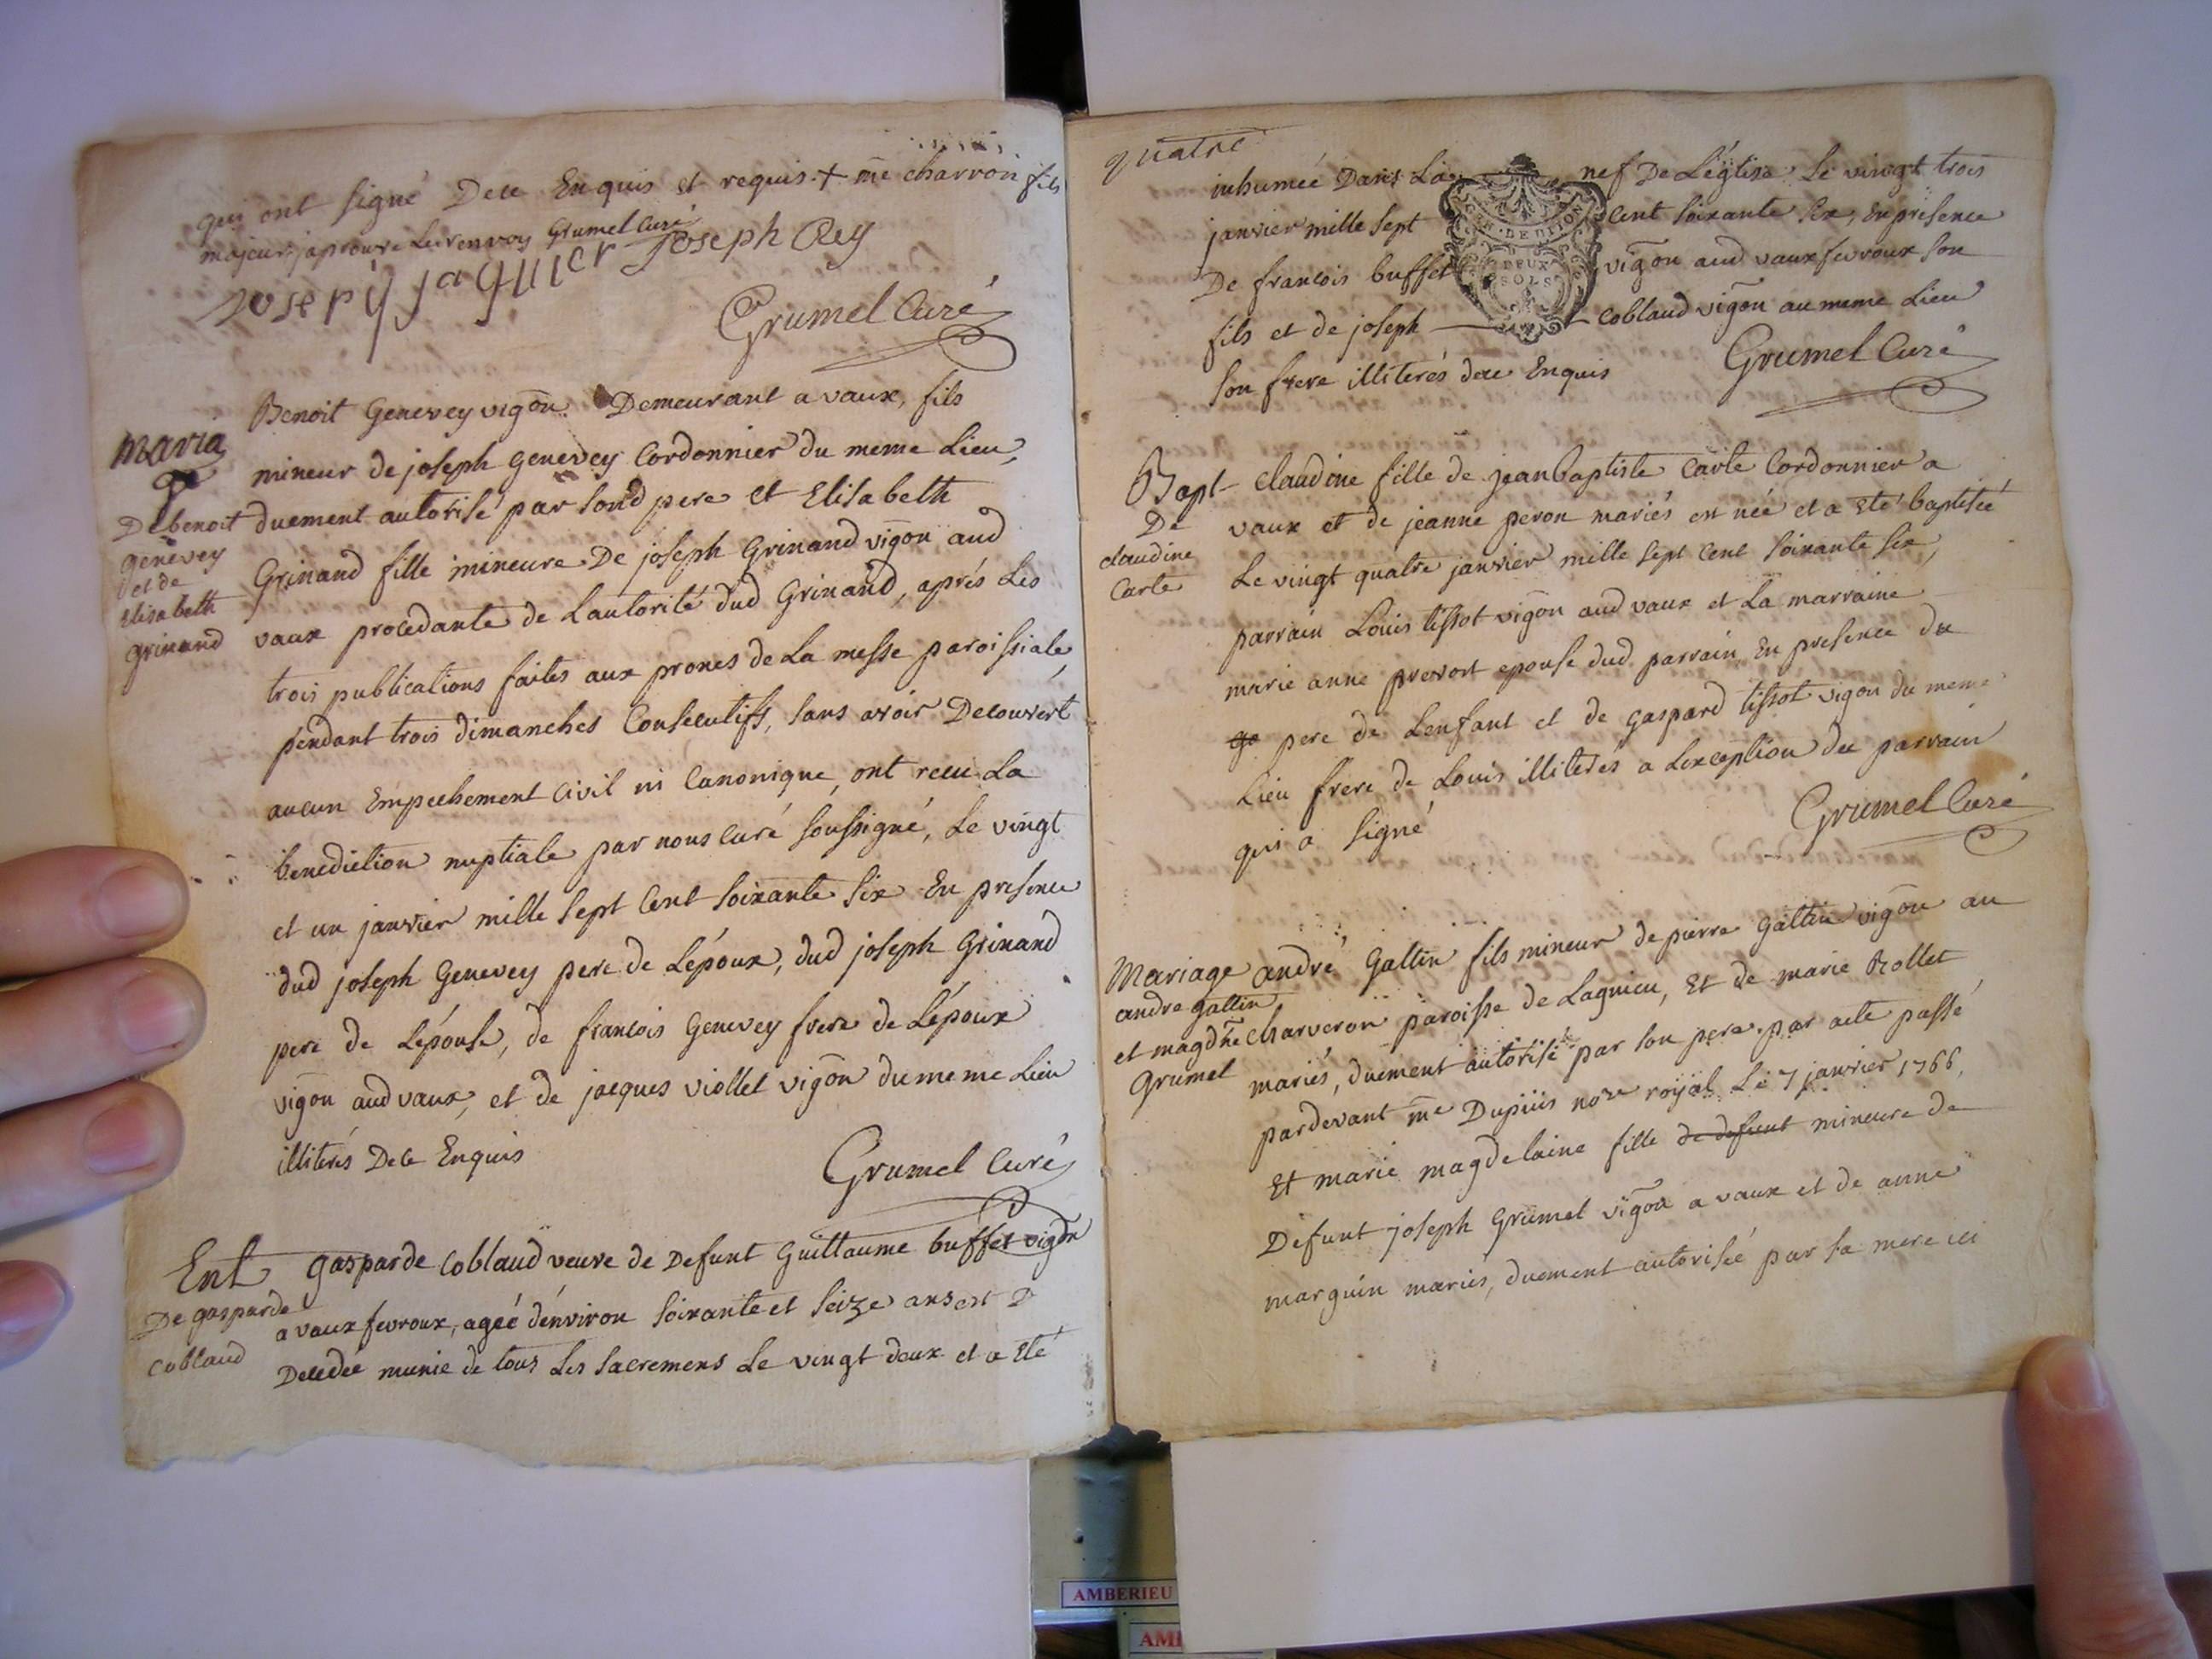 qui ont signé De ce Enquis et requis + me charron fils
majeur japrouve Le renvoy Grumel Curé
Joseph jaquier Joseph Rey
Grumel Curé
Maria
De benoit
genevey
et de
Elisabeth
grinand
Benoit Genevey vigon Demeurant a vaux, fils
mineur de joseph genevey Cordonnier du meme Lieu,
duement autorisé par sond pere et Elisabeth
Grinand fille mineure De joseph Grinand vigon aud
vaux procedante de Lautorité dud Grinand, aprés Les
trois publications faites aux prones de La messe paroissiale,
pendant trois dimanches Consecutifs, sans avoir Decouvert
aucun Empechement Civil ni Canonique, ont recu La
benediction nuptiale par nous curé soussigné, Le vingt
et un janvier mille sept Cent soixante six En presence
dud joseph Genevey pere de Lépoux, dud joseph Grinand
pere de Lépouse, de francois Genevey frere de Lépoux
vigon aud vaux, et de jacques viollet vigon du meme Lieu
illiterés De ce Enquis
Grumel Curé
Ent
De gasparde
Coblaud
gasparde Coblaud veuve de Defunt Guillaume buffet vigon
a vaux fevroux, ageé dénviron soixante et seize ans est D
Decedeé munie de tous Les sacremens Le vingt deux et a eté
quatre
inhumeé Dans La nef De Léglise Le vingt trois
janvier mille sept Cent soixante six, En presence
De francois buffet vigon aud vaux fevroux son
fils et de joseph Coblaud vigon au meme Lieu
son frere illiterés de ce Enquis
GEN. DE DIJON
DEUX
SOLS
Grumel Curé
Bapt
De
claudine
Carle
Claudine fille de jean baptiste Carle Cordonnier a
vaux et de jeanne peron mariés est née et a eté baptiseé
Le vingt quatre janvier mille sept Cent soixante six,
parrain Louis tissot vigon aud vaux et La marraine
marie anne prevost epouse dud parrain En presence du
ga pere de Lenfant et de gaspard tissot vigon du meme
Lieu frere de Louis illiterés a Lexception du parrain
qui a signé
Grumel Curé
Mariage
andre gallin
et magdne
Grumel
andré Gallin fils mineur de pierre Gallin vigon au
Charveron paroisse de Lagnieu, Et de marie Rollet
mariés, duement autorisé par son pere par acte passé
pardevant me Dupuis nore royal Le 7 janvier 1766,
Et marie magdelaine fille de defunt mineure de
Défunt joseph Grumel vigon a vaux et de anne
marguin mariés, duement autoriseé par sa mere ici
AMBERIEU